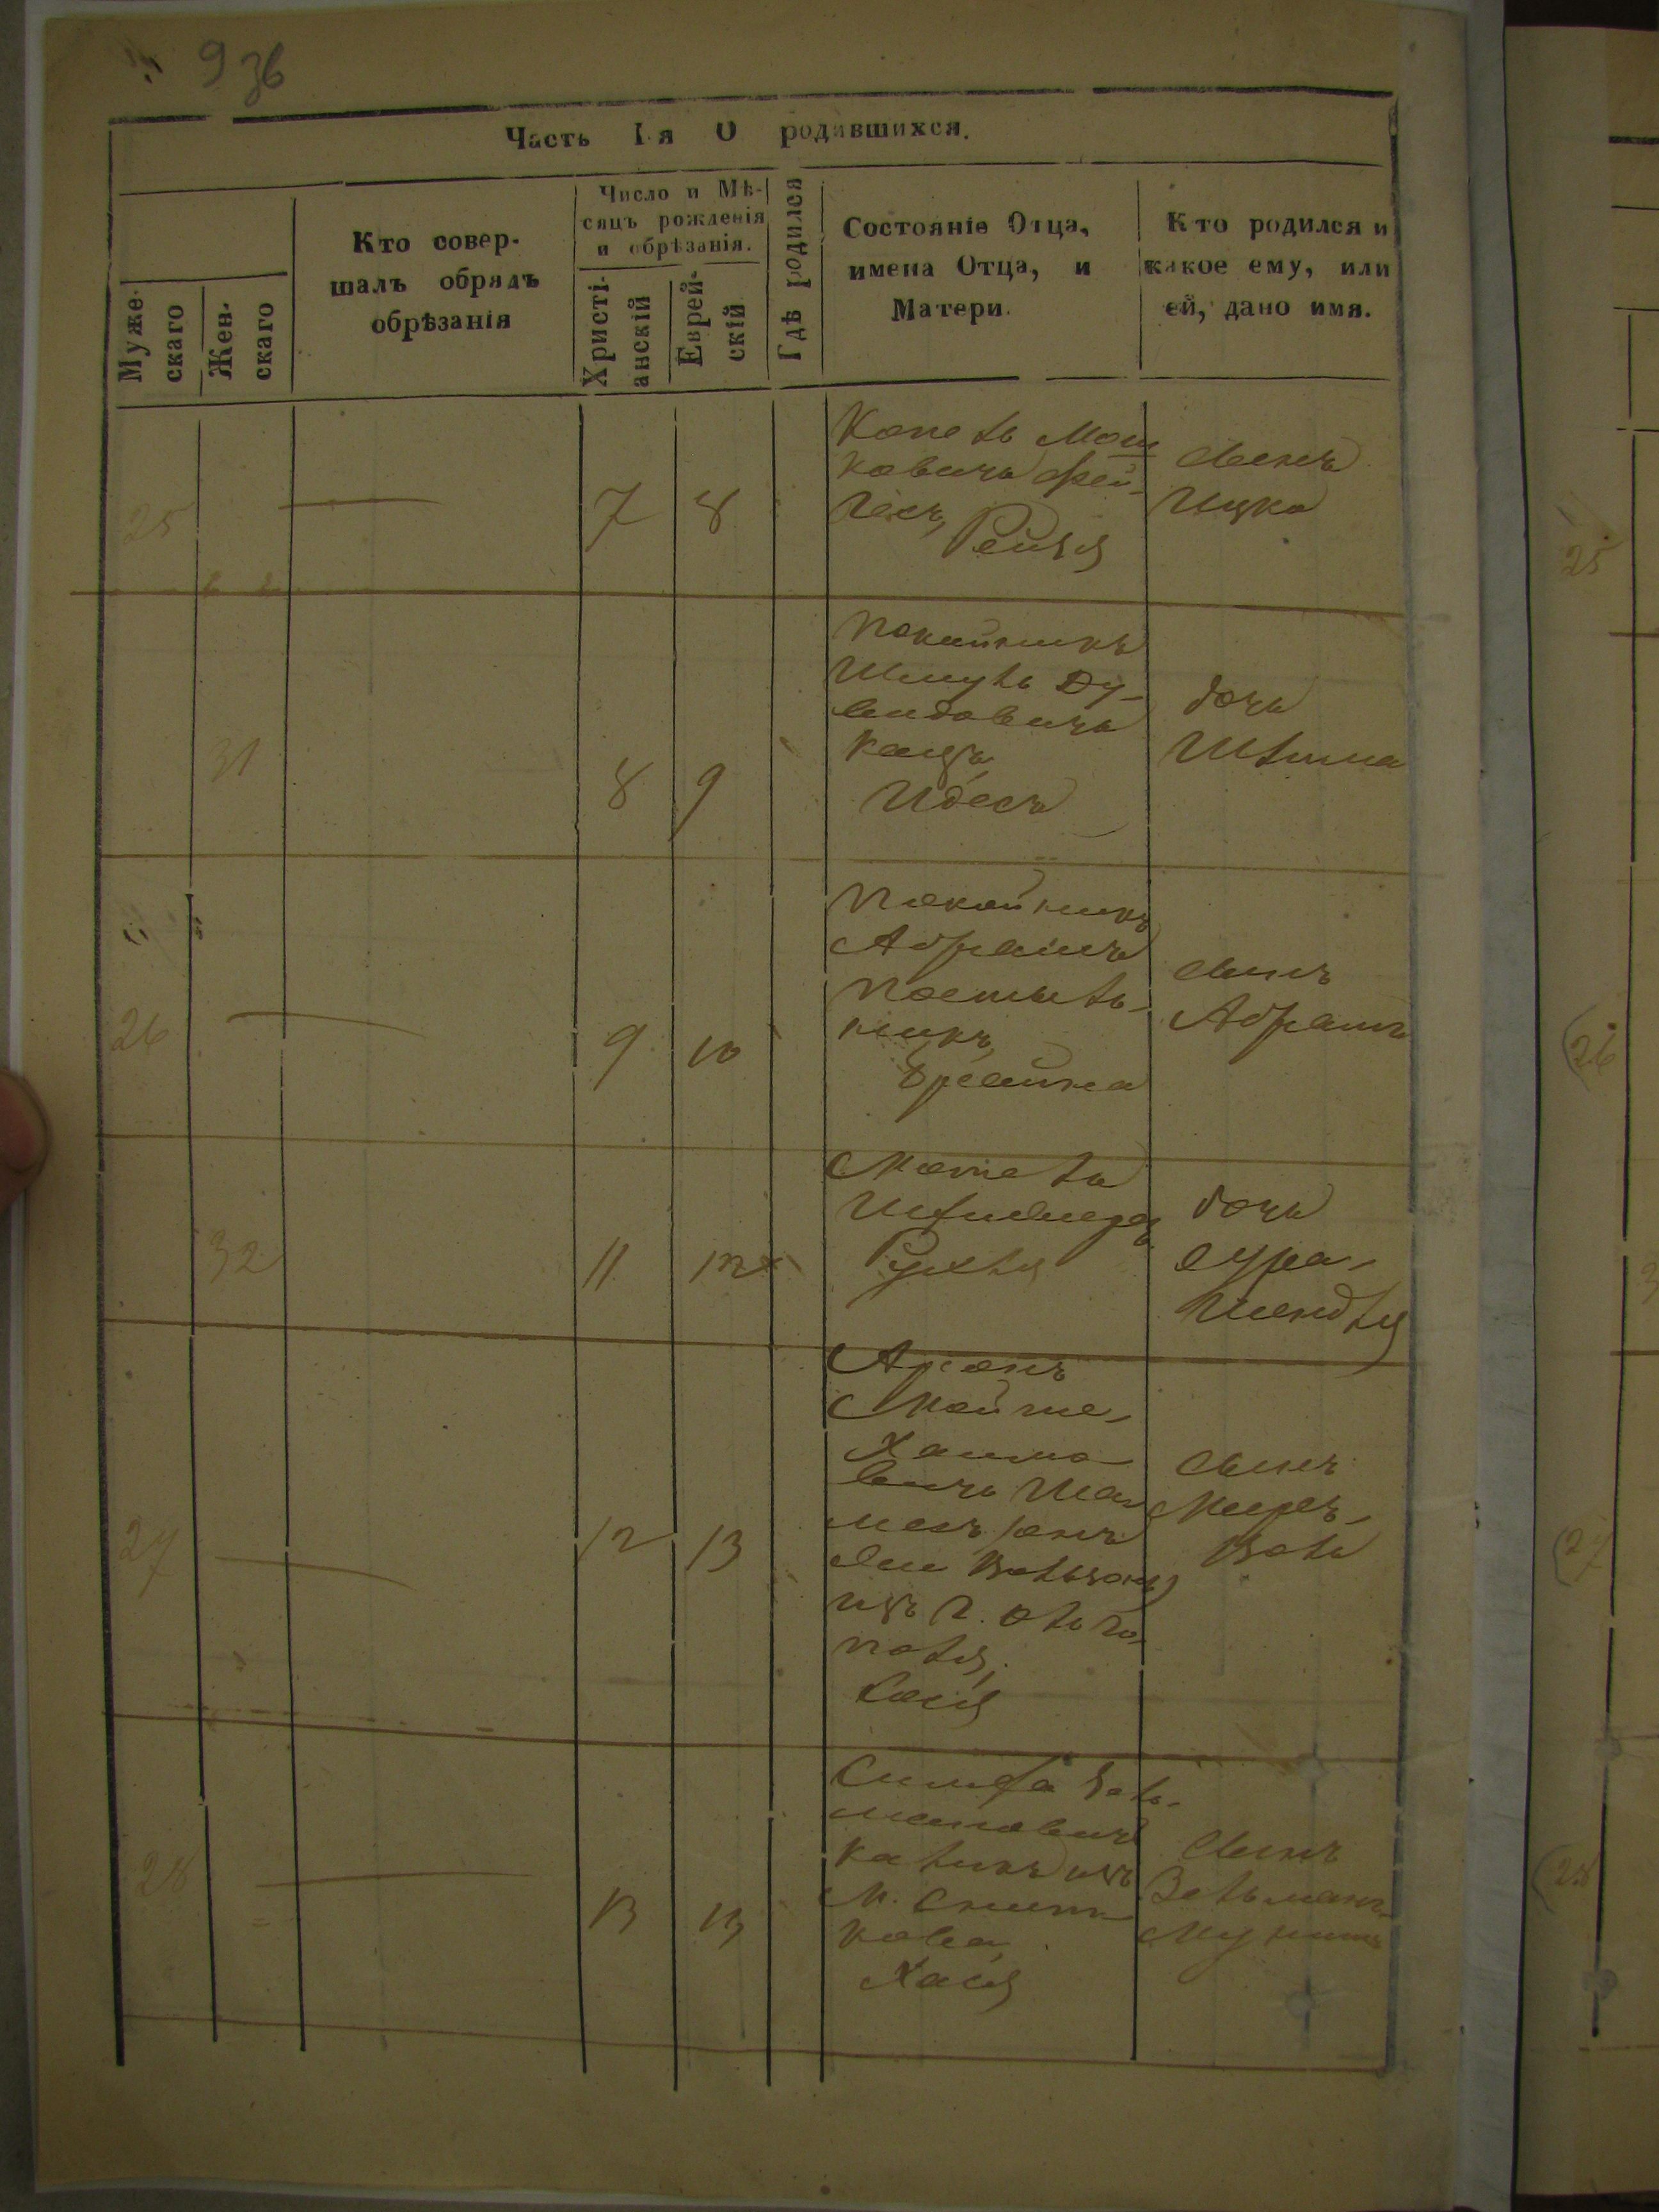 936
Часть I-я О родившихся.
Муже-
скаго
Жен-
скаго
Кто совер-
шалъ обрядъ
обрѣзанія
Число и Мѣ-
сяцъ рожденія
и обрѣзанія.
Христі-
анскій
Еврей-
скій
Гдѣ родился
Состояніе Отца,
имена Отца, и
Матери.
Кто родился и
какое ему, или
ей, дано имя.
25
7
8
Копель Мош
ковичъ Фей-
Рейзя
сынъ
Ицко
31
8
9
покойникъ
Шмуль Ду-
видовичъ
Кацъ,
Идесъ
дочь
Шейма
26
9
10
Покойникъ
Абрамъ
никъ,
Брайна
сынъ
Абрамъ
32
11
12
Мотель
Рухля
дочь
Сура-
Шендля
27
12
13
Аронъ
Мойше-
Хаимо-
вичъ
изъ г. Ольго-
поля,
Сося
сынъ
Мееръ-
Волъ
28
13
13
Симха Зель-
мановичъ
изъ
м. Снит-
кова,
Хася
сынъ
Зельманъ-